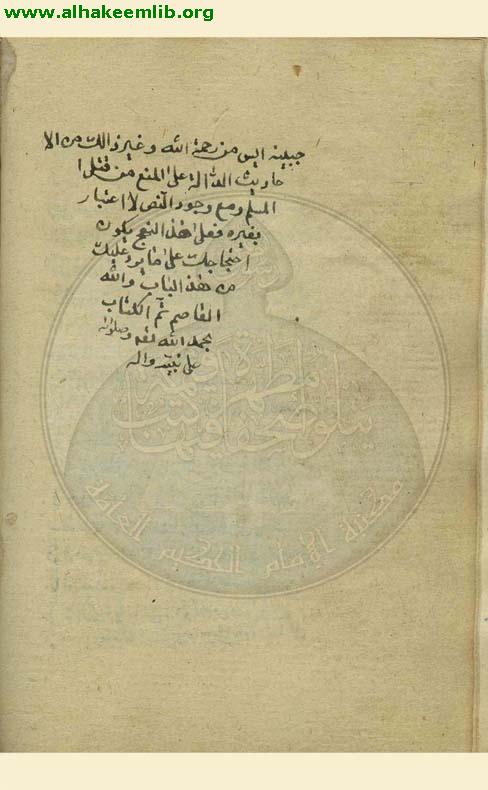 www.alhakeemlib.org
جبينه ايس من رحمة الله وغير ذالك من الا
حاديث الدالة على المنع من قتل ا
لمسلم ومع وجود النص لا اعتبار
بغيره فعلى هذا النهج يكون
احتجاجك على ما يرد عليك
من هذا الباب والله
العاصم تم الكتاب
بحمد الله تعه وصلواته
على نبيه واله
رسول
مطهرة فيها
يتلو صحفا كتب قيمة
مكتبة الإمام الحكيم العامة